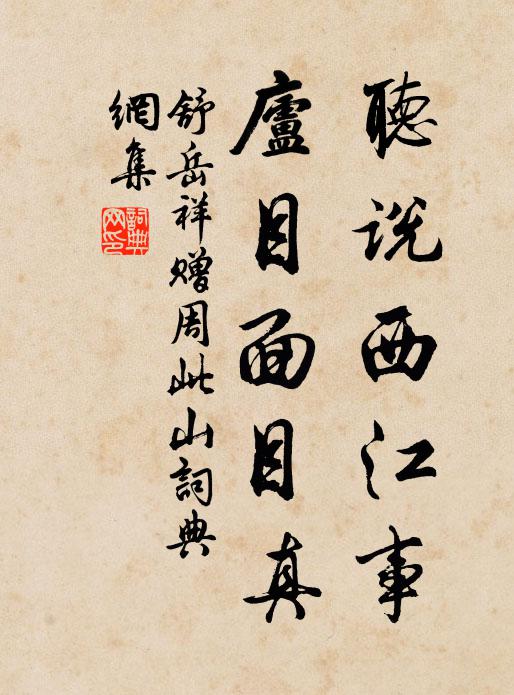 聽說西江事
廬目面目真
舒岳祥贈周此山詞典
網集
詞典
网印